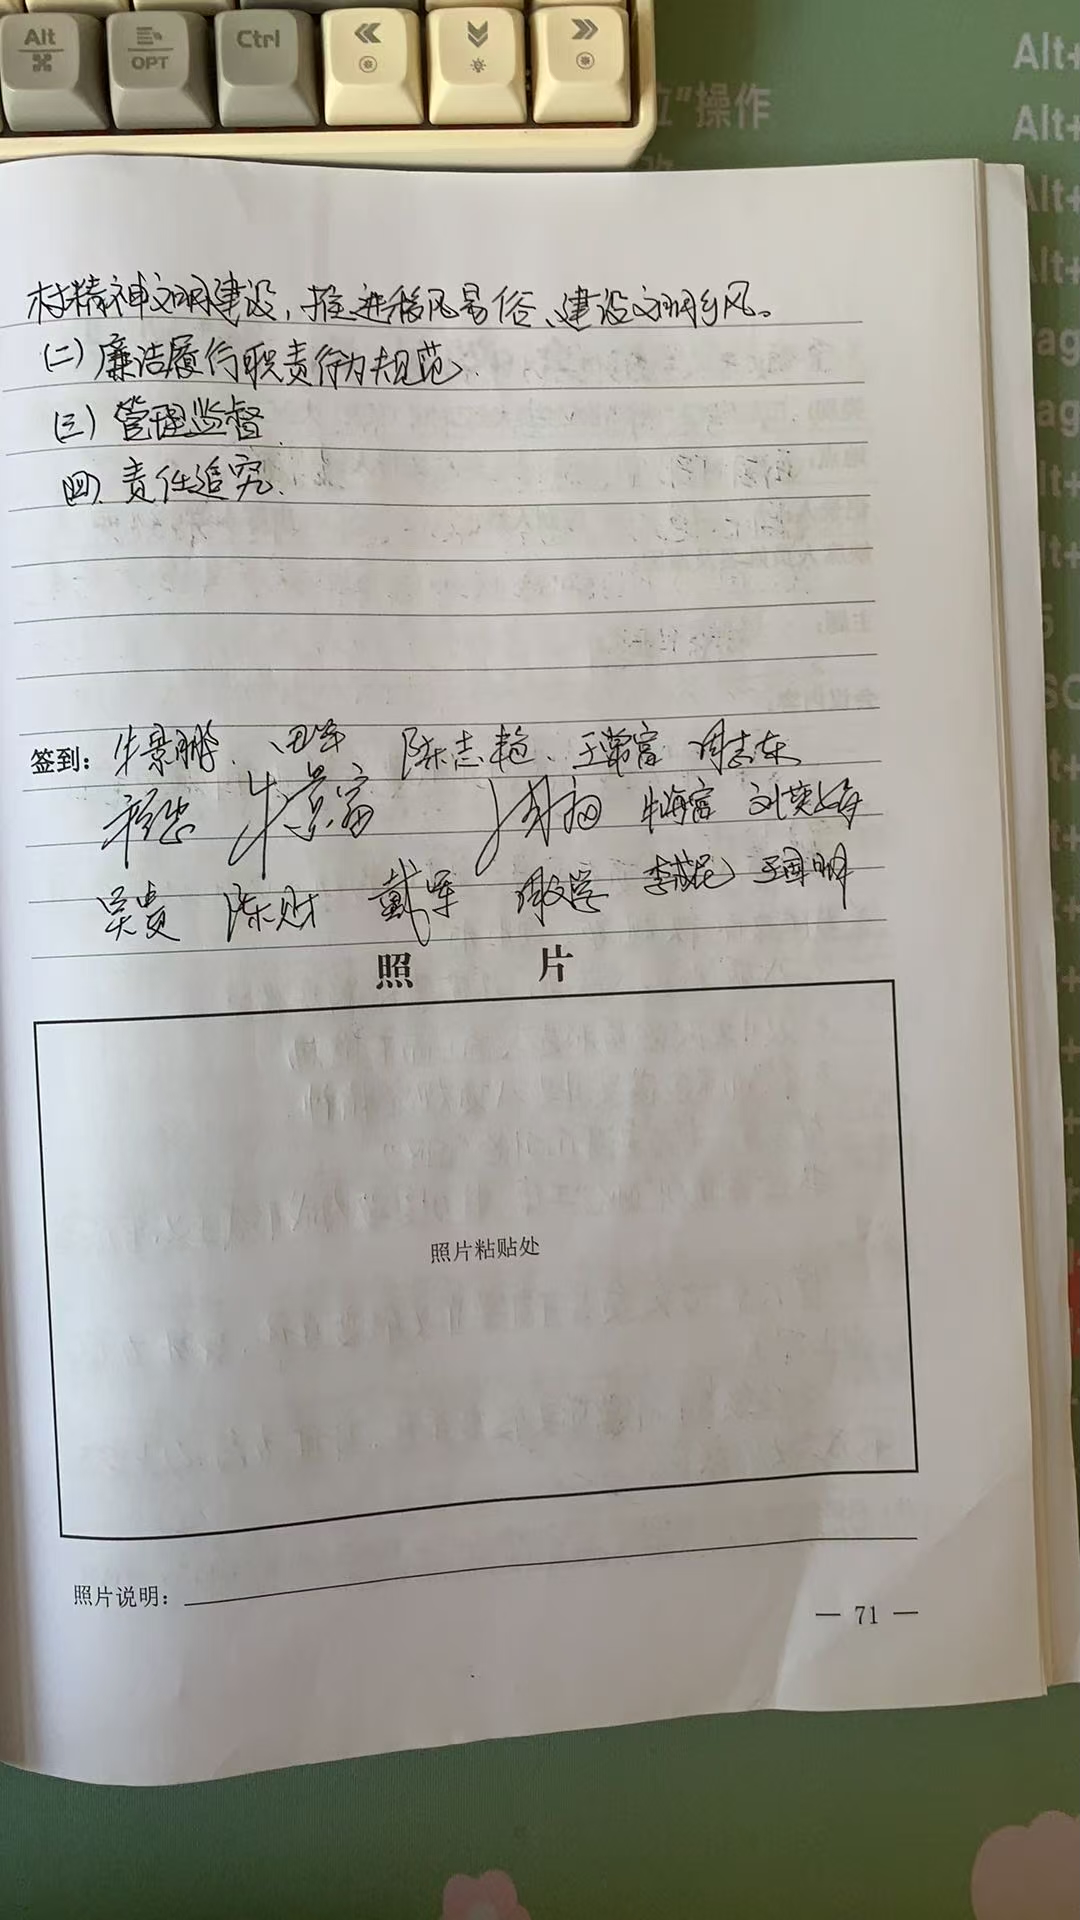 Alt
OPT
Ctrl
"操作
Alt+
Alt+
Alt+
村精神文明建设，推进移风易俗、建设文明乡风。
(二)廉洁履行职责行为规范.
(三)管理监督.
四、责任追究.
签到：牛景鹏 田军 陈志艳 王常富 周志东
牛景富 牛海富 刘英梅
吴贵 陈财 戴军 周文学 王国明
照 片
照片粘贴处
照片说明：
— 71 —